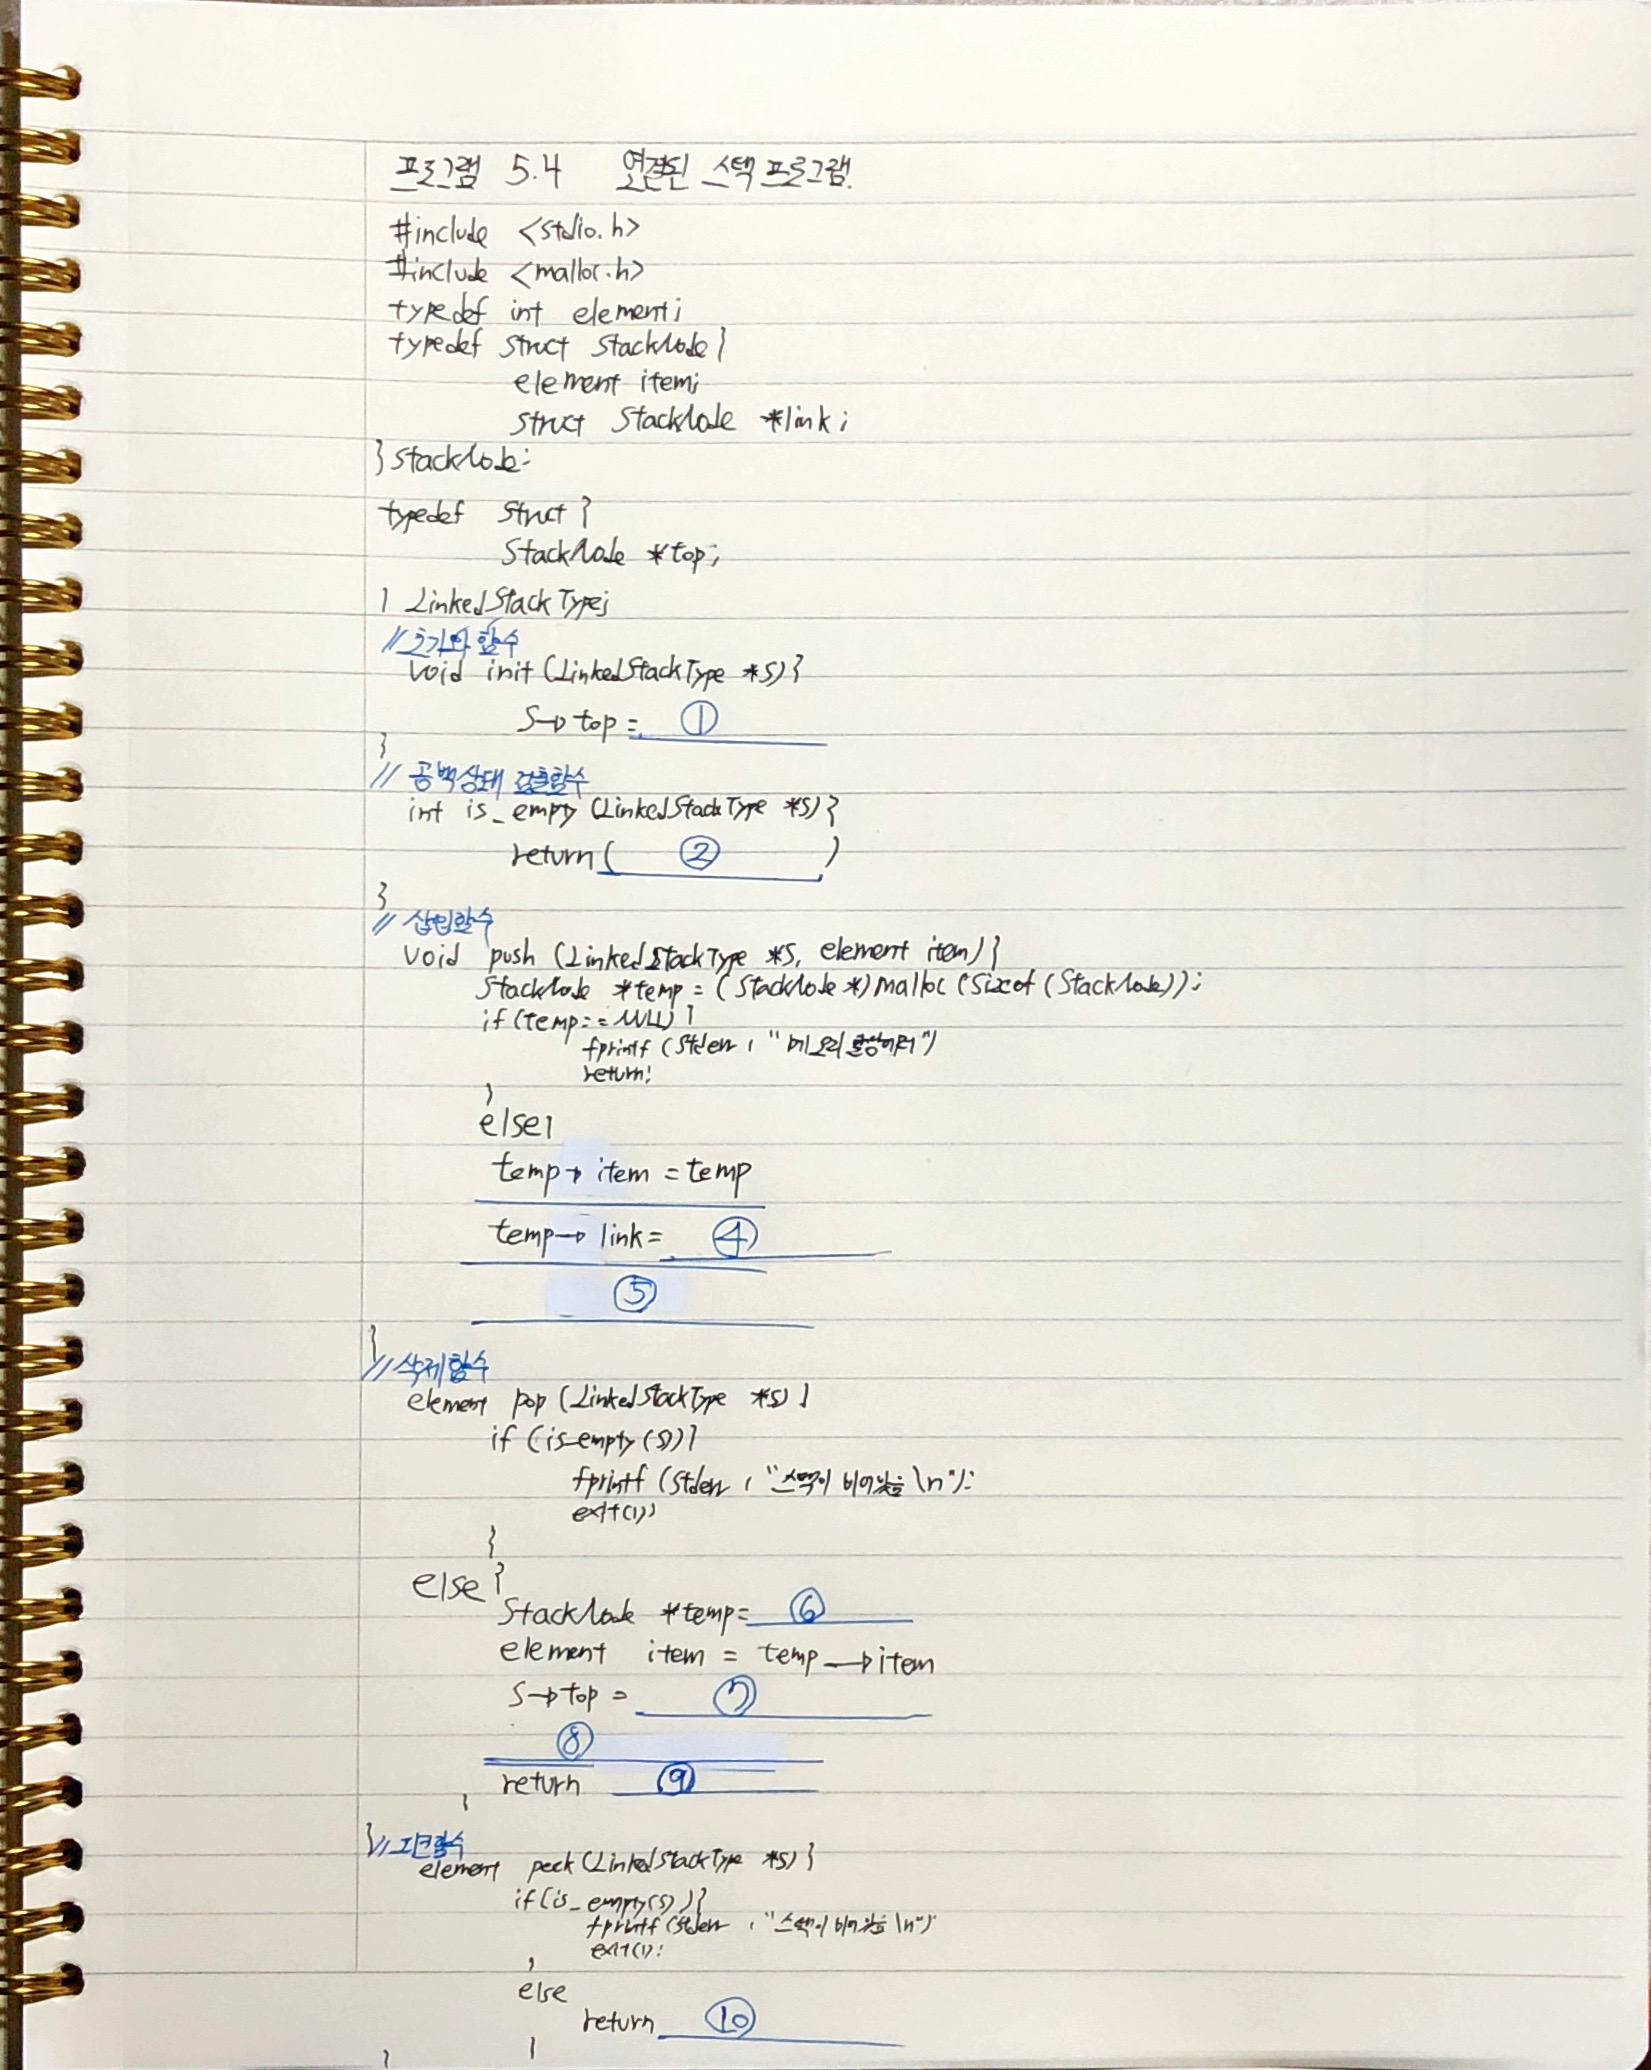 프로그램 5.4 연결된 스택 프로그램.
#include <stdio.h>
#include <malloc.h>
typedef int element;
typedef struct StackNode{
element item;
struct StackNode *link;
}StackNode;
typedef struct {
StackNode *top;
} LinkedStackType;
// 초기화 함수
void init (LinkedStackType *S){
S→top = ①
}
// 공백상태 검출함수
int is_empty (LinkedStackType *S){
return( ② )
}
// 삽입함수
void push (LinkedStackType *S, element item){
StackNode *temp = (StackNode *)malloc(sizeof(StackNode));
if(temp==NULL){
fprintf (stderr, "메모리 할당에러")
return;
}
else{
temp→item = temp
temp→link = ④
⑤
}
// 삭제함수
element pop (LinkedStackType *S){
if (is_empty(S)){
fprintf (stderr, "스택이 비어있음\n");
exit(1);
}
else{
StackNode *temp= ⑥
element item = temp→item
S→top = ⑦
⑧
return ⑨
}
}// 피크함수
element peek (LinkedStackType *S){
if(is_empty(S)){
fprintf(stderr, "스택이 비어있음\n")
exit(1);
}
else
return ⑩
}
}